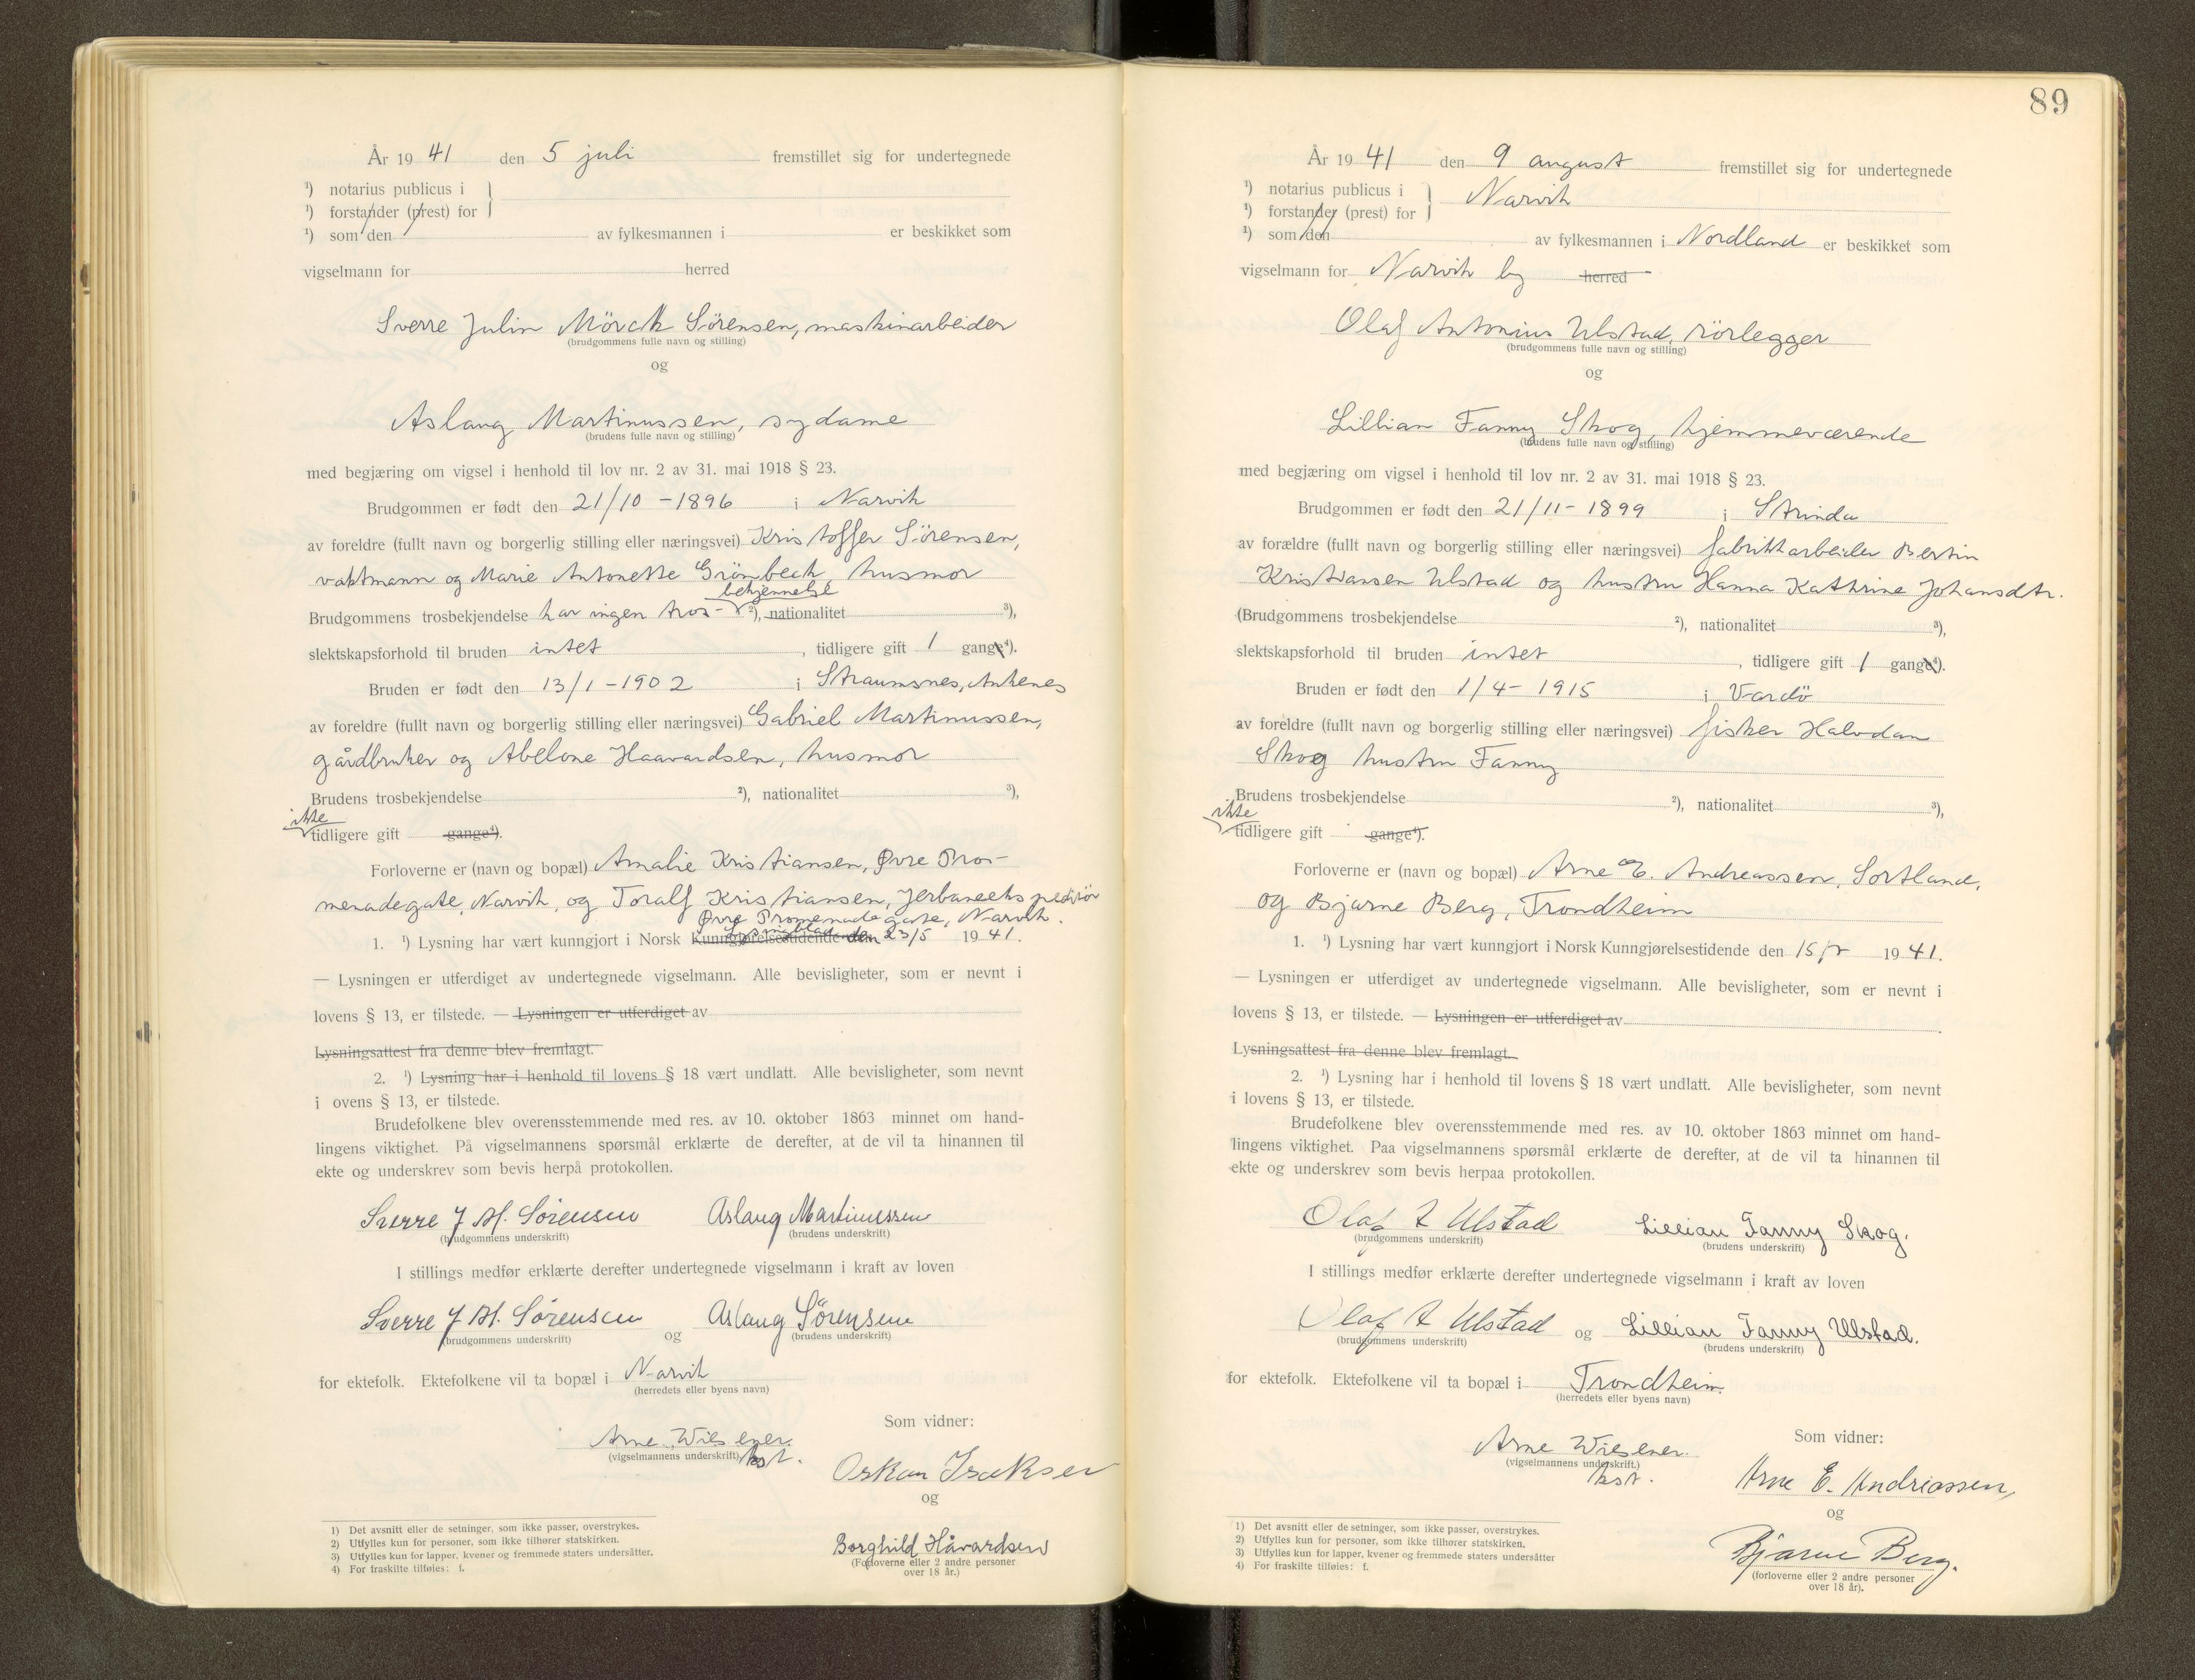 År 1941 den 5 juli fremstillet sig for undertegnede
¹) notarius publicus i
¹) forstander (prest) for
¹) som den av fylkesmannen i er beskikket som
vigselmann for herred
Sverre Julin Mörck Sörensen, maskinarbeider
(brudgommens fulle navn og stilling)
og
Aslaug Martinussen, sydame
(brudens fulle navn og stilling)
med begjæring om vigsel i henhold til lov nr. 2 av 31. mai 1918 § 23.
Brudgommen er født den 21/10 - 1896 i Narvik
av foreldre (fullt navn og borgerlig stilling eller næringsvei) Kristoffer Sörensen,
vaktmann og Marie Antonette Grönbeck, husmor
bekjennelse
Brudgommens trosbekjendelse har ingen tros- ²), nationalitet ³),
slektskapsforhold til bruden intet, tidligere gift 1 gange⁴).
Bruden er født den 13/1 - 1902 i Straumsnes, Ankenes
av foreldre (fullt navn og borgerlig stilling eller næringsvei) Gabriel Martinussen,
gårdbruker og Abelone Haavardsen, husmor
Brudens trosbekjendelse ²), nationalitet ³),
ikke
tidligere gift gange⁴).
Forloverne er (navn og bopæl) Amalie Kristiansen, Øvre Pro-
menadegate, Narvik, og Toralf Kristiansen, jerbaneekspeditör
Øvre Promenadegate, Narvik.
1. ¹) Lysning har vært kunngjort i Norsk Kunngjørelsestidende den 23/5 1941.
— Lysningen er utferdiget av undertegnede vigselmann. Alle bevisligheter, som er nevnt i
lovens § 13, er tilstede. — Lysningen er utferdiget av
Lysningsattest fra denne blev fremlagt.
2. ¹) Lysning har i henhold til lovens § 18 vært undlatt. Alle bevisligheter, som nevnt
i ovens § 13, er tilstede.
Brudefolkene blev overensstemmende med res. av 10. oktober 1863 minnet om hand-
lingens viktighet. På vigselmannens spørsmål erklærte de derefter, at de vil ta hinannen til
ekte og underskrev som bevis herpå protokollen.
Sverre J M. Sörensen Aslaug Martinussen
(brudgommens underskrift) (brudens underskrift)
I stillings medfør erklærte derefter undertegnede vigselmann i kraft av loven
Sverre J M. Sörensen og Aslaug Sörensen
(brudgommens underskrift) (brudens underskrift)
for ektefolk. Ektefolkene vil ta bopæl i Narvik
(herredets eller byens navn)
Som vidner:
Arne Wiesener.
(vigselmannens underskrift) kst.
Oskar Isaksen
og
Borghild Håvardsen
(Forloverne eller 2 andre personer
over 18 år.)
1) Det avsnitt eller de setninger, som ikke passer, overstrykes.
2) Utfylles kun for personer, som ikke tilhører statskirken.
3) Utfylles kun for lapper, kvener og fremmede staters undersåtter.
4) For fraskilte tilføies: f.
89
År 1941 den 9 august fremstillet sig for undertegnede
¹) notarius publicus i Narvik
¹) forstander (prest) for
¹) som den av fylkesmannen i Nordland er beskikket som
vigselmann for Narvik by herred
Olaf Antonius Ulstad, rörlegger
(brudgommens fulle navn og stilling)
og
Lillian Fanny Skog, hjemmeværende
(brudens fulle navn og stilling)
med begjæring om vigsel i henhold til lov nr. 2 av 31. mai 1918 § 23.
Brudgommen er født den 21/11 - 1899 i Strinda
av forældre (fullt navn og borgerlig stilling eller næringsvei) fabrikkarbeider Bertin
Kristiansen Ulstad og hustru Hanna Kathrine Johansdtr.
(Brudgommens trosbekjendelse ²), nationalitet ³),
slektskapsforhold til bruden intet, tidligere gift 1 gange⁴).
Bruden er født den 1/4 - 1915 i Vardö
av foreldre (fullt navn og borgerlig stilling eller næringsvei) fisker Halvdan
Skog hustru Fanny
Brudens trosbekjendelse ²), nationalitet ³),
ikke
tidligere gift gange⁴).
Forloverne er (navn og bopæl) Arne E. Andreassen, Sortland,
og Bjarne Berg, Trondheim
1. ¹) Lysning har vært kunngjort i Norsk Kunngjørelsestidende den 15/ 1941.
— Lysningen er utferdiget av undertegnede vigselmann. Alle bevisligheter, som er nevnt i
lovens § 13, er tilstede. — Lysningen er utferdiget av
Lysningsattest fra denne blev fremlagt.
2. ¹) Lysning har i henhold til lovens § 18 vært undlatt. Alle bevisligheter, som nevnt
i lovens § 13, er tilstede.
Brudefolkene blev overensstemmende med res. av 10. oktober 1863 minnet om hand-
lingens viktighet. Paa vigselmannens spørsmål erklærte de derefter, at de vil ta hinannen til
ekte og underskrev som bevis herpaa protokollen.
Olaf A Ulstad Lillian Fanny Skog.
(brudgommens underskrift) (brudens underskrift)
I stillings medfør erklærte derefter undertegnede vigselmann i kraft av loven
Olaf A Ulstad og Lillian Fanny Ulstad.
(brudgommens underskrift) (brudens underskrift)
for ektefolk. Ektefolkene vil ta bopæl i Trondheim.
(herredets eller byens navn)
Som vidner:
Arne Wiesener.
(vigselmannens underskrift.)
kst.
Arne E. Andriassen,
og
Bjarne Berg.
(forloverne eller 2 andre personer
over 18 år).
1) Det avsnitt eller de setninger, som ikke passer, overstrykes.
2) Utfylles kun for personer, som ikke tilhører statskirken.
3) Utfylles kun for lapper, kvener og fremmede staters undersåtter
4) For fraskilte tilføies: f.